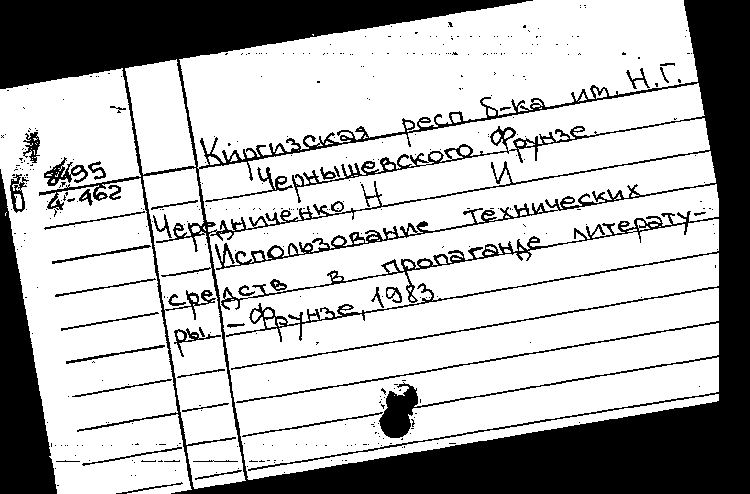 Киргизская респ. б-ка им. Н.Г.
Чернышевского. Фрунзе.
8495
4-462
Чередниченко, Н И
Использование технических
средств в пропаганде литерату-
ры. – Фрунзе, 1983.